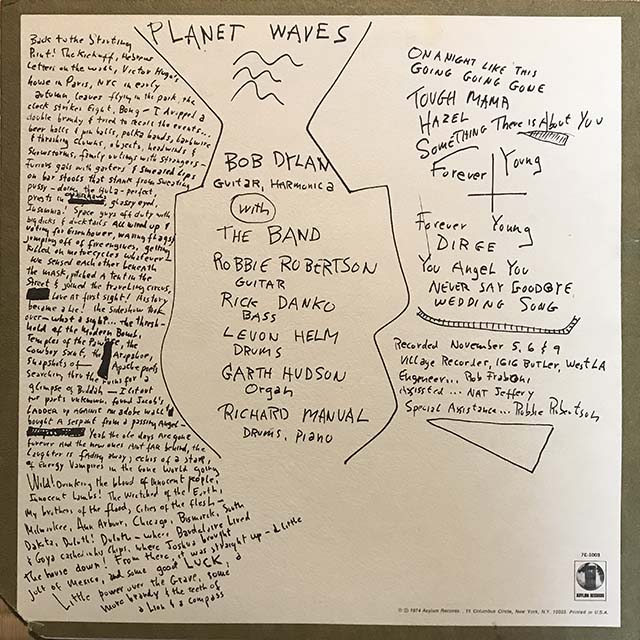 PLANET WAVES
Back to the Starting
Point! The Kickoff, Hebrew
Letters on the wall, Victor Hugo's
house in Paris, NYC in early
autumn leaves flying in the park, the
clock strikes Eight, Bong - I dropped a
double brandy & tried to recall the events...
beer halls & pin balls, polka bands, barbwire
& thrashing clowns, objects, headwinds &
Snowstorms, family outings with strangers -
Furious gals with garters & smeared lips
on bar stools that stank from sweating
pussy - doing the Hula - perfect
priests in glassy eyed,
Insomnia! Space guys off duty with
big dicks & ducktails All wired up &
voting for Eisenhower, waving flags &
jumping off of fire engines, getting
killed on motorcycles whatever -
We sensed each other beneath
the MASK, pitched a tent in the
Street & joined the traveling circus,
Love at first sight! History
became a lie! the sideshow took
over - what a sight... the thresh-
hold of the Modern Bomb,
Temples of the Pawnee, the
Cowboy Saint, the Arapahoe,
snapshots of Apache poets
searching thru the ruins for a
glimpse of Buddah - I lit out
for parts unknown, found Jacob's
Ladder up against an adobe wall &
bought A serpent from a passing Angel -
Yeah the ole days are gone
forever And the new ones Aint far behind, the
Laughter is fading away, echos of a star,
of Energy Vampires in the Gone World going
Wild! Drinking the blood of innocent people,
Innocent Lambs! The Wretched of the Earth,
My brothers of the flood, Cities of the flesh -
Milwaukee, Ann Arbor, Chicago, Bismarck, South
Dakota, Duluth! Duluth - where Baudelaire Lived
& Goya cashed in his Chips, where Joshua brought
the house down! From there, it was straight up - a little
jolt of Mexico, and some good LUCK, a
Little power over the Grave, some
more brandy & the teeth of
a Lion & a compass
BOB DYLAN
GUITAR, HARMONICA
with
THE BAND
ROBBIE ROBERTSON
GUITAR
RICK DANKO
BASS
LEVON HELM
DRUMS
GARTH HUDSON
Organ
RICHARD MANUAL
DRUMS, PIANO
ON A NIGHT LIKE THIS
GOING GOING GONE
TOUGH MAMA
HAZEL
SOMETHING There is About You
Forever Young
Forever Young
DIRGE
You Angel You
NEVER SAY GOODBYE
WEDDING SONG
Recorded November 5, 6 & 9
Village Recorder, 1616 Butler, West LA
Engineer... Rob Fraboni
Assisted... NAT Jeffery
Special Assistance... Robbie Robertson
7E-1003
ASYLUM RECORDS
© ℗ 1974 Asylum Records, 11 Columbus Circle, New York, N.Y. 10023. Printed in U.S.A.